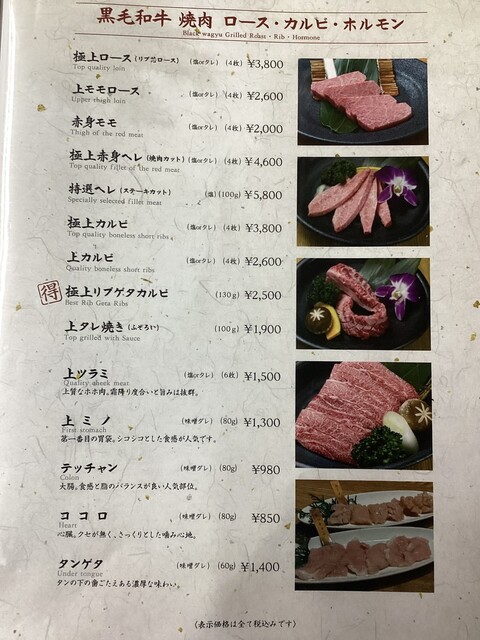 黒毛和牛 焼肉 ロース・カルビ・ホルモン
Black wagyu Grilled Roast・Rib・Hormone
極上ロース(リブ芯ロース) (塩orタレ) (4枚) ¥3,800
Top quality loin
上モモロース (塩orタレ) (4枚) ¥2,600
Upper thigh loin
赤身モモ (塩orタレ) (4枚) ¥2,000
Thigh of the red meat
極上赤身ヘレ(焼肉カット) (塩orタレ) (4枚) ¥4,600
Top quality fillet of the red meat
特選ヘレ(ステーキカット) (塩) (100g) ¥5,800
Specially selected fillet meat
極上カルビ (塩orタレ) (4枚) ¥3,800
Top quality boneless short ribs
上カルビ (塩orタレ) (4枚) ¥2,600
Quality boneless short ribs
得 極上リブゲタカルビ (130g) ¥2,500
Best Rib Geta Ribs
上タレ焼き(ふぞろい) (100g) ¥1,900
Top grilled with Sauce
上ツラミ (塩orタレ) (6枚) ¥1,500
Quality cheek meat
上質なホホ肉。霜降り度合いと旨みは抜群。
上ミノ (味噌ダレ) (80g) ¥1,300
First stomach
第一番目の胃袋。シコシコとした食感が人気です。
テッチャン (味噌ダレ) (80g) ¥980
Colon
大腸。食感と脂のバランスが良い人気部位。
ココロ (味噌ダレ) (80g) ¥850
Heart
心臓。クセが無く、さっくりとした噛み心地。
タンゲタ (味噌ダレ) (60g) ¥1,400
Under tongue
タンの下の歯ごたえある濃厚な味わい。
(表示価格は全て税込みです)